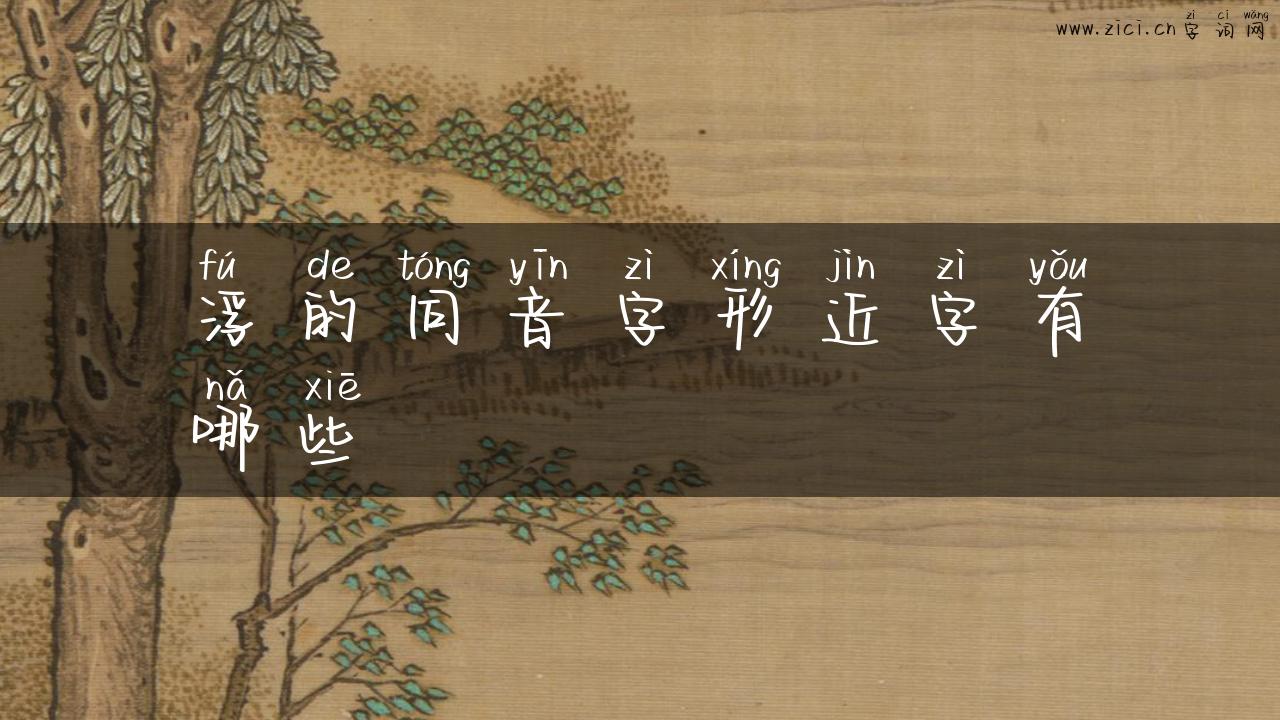 zì cí wǎng
www.zici.cn 字词网
fú de tóng yīn zì xíng jìn zì yǒu
浮的同音字形近字有
nǎ xiē
哪些